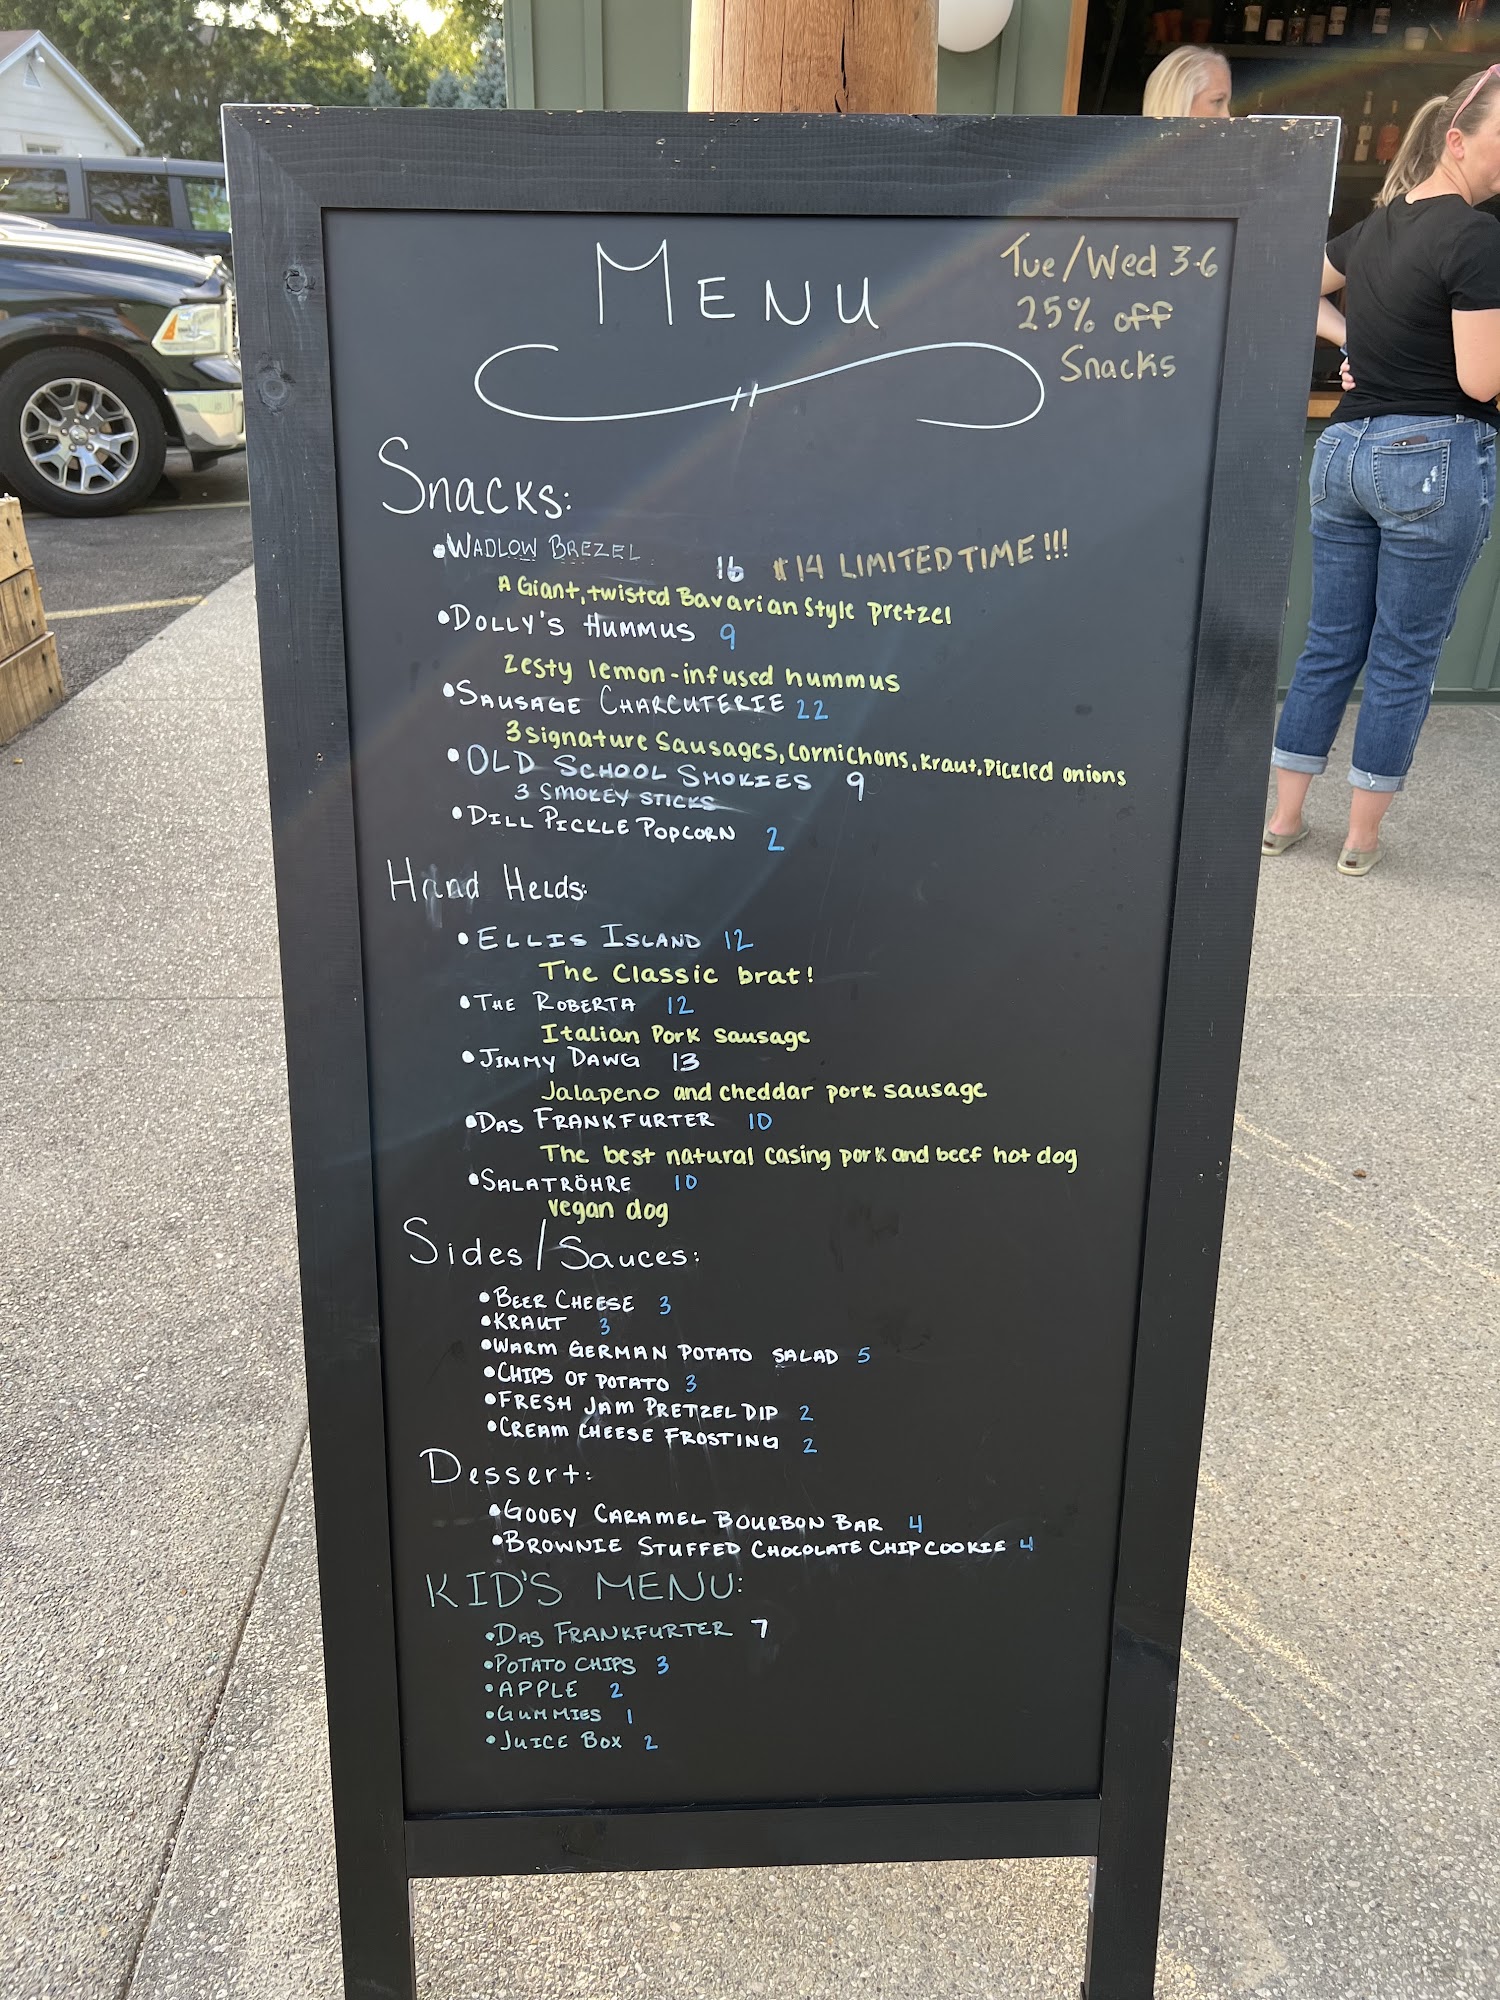 MENU
Tue/Wed 3-6
25% off
Snacks
Snacks:
•WADLOW BREZEL 16 $14 LIMITED TIME!!!
A Giant, twisted Bavarian Style pretzel
•DOLLY'S HUMMUS 9
Zesty lemon-infused hummus
•SAUSAGE CHARCUTERIE 22
3 signature Sausages, Cornichons, Kraut, Pickled onions
•OLD SCHOOL SMOKIES 9
3 SMOKEY STICKS
•DILL PICKLE POPCORN 2
Hand Helds:
•ELLIS ISLAND 12
The Classic brat!
•THE ROBERTA 12
Italian Pork sausage
•JIMMY DAWG 13
Jalapeno and cheddar pork sausage
•DAS FRANKFURTER 10
The best natural casing pork and beef hot dog
•SALATRÖHRE 10
vegan dog
Sides/Sauces:
•BEER CHEESE 3
•KRAUT 3
•WARM GERMAN POTATO SALAD 5
•CHIPS OF POTATO 3
•FRESH JAM PRETZEL DIP 2
•CREAM CHEESE FROSTING 2
Dessert:
•GOOEY CARAMEL BOURBON BAR 4
•BROWNIE STUFFED CHOCOLATE CHIP COOKIE 4
KID'S MENU:
•DAS FRANKFURTER 7
•POTATO CHIPS 3
•APPLE 2
•GUMMIES 1
•JUICE BOX 2